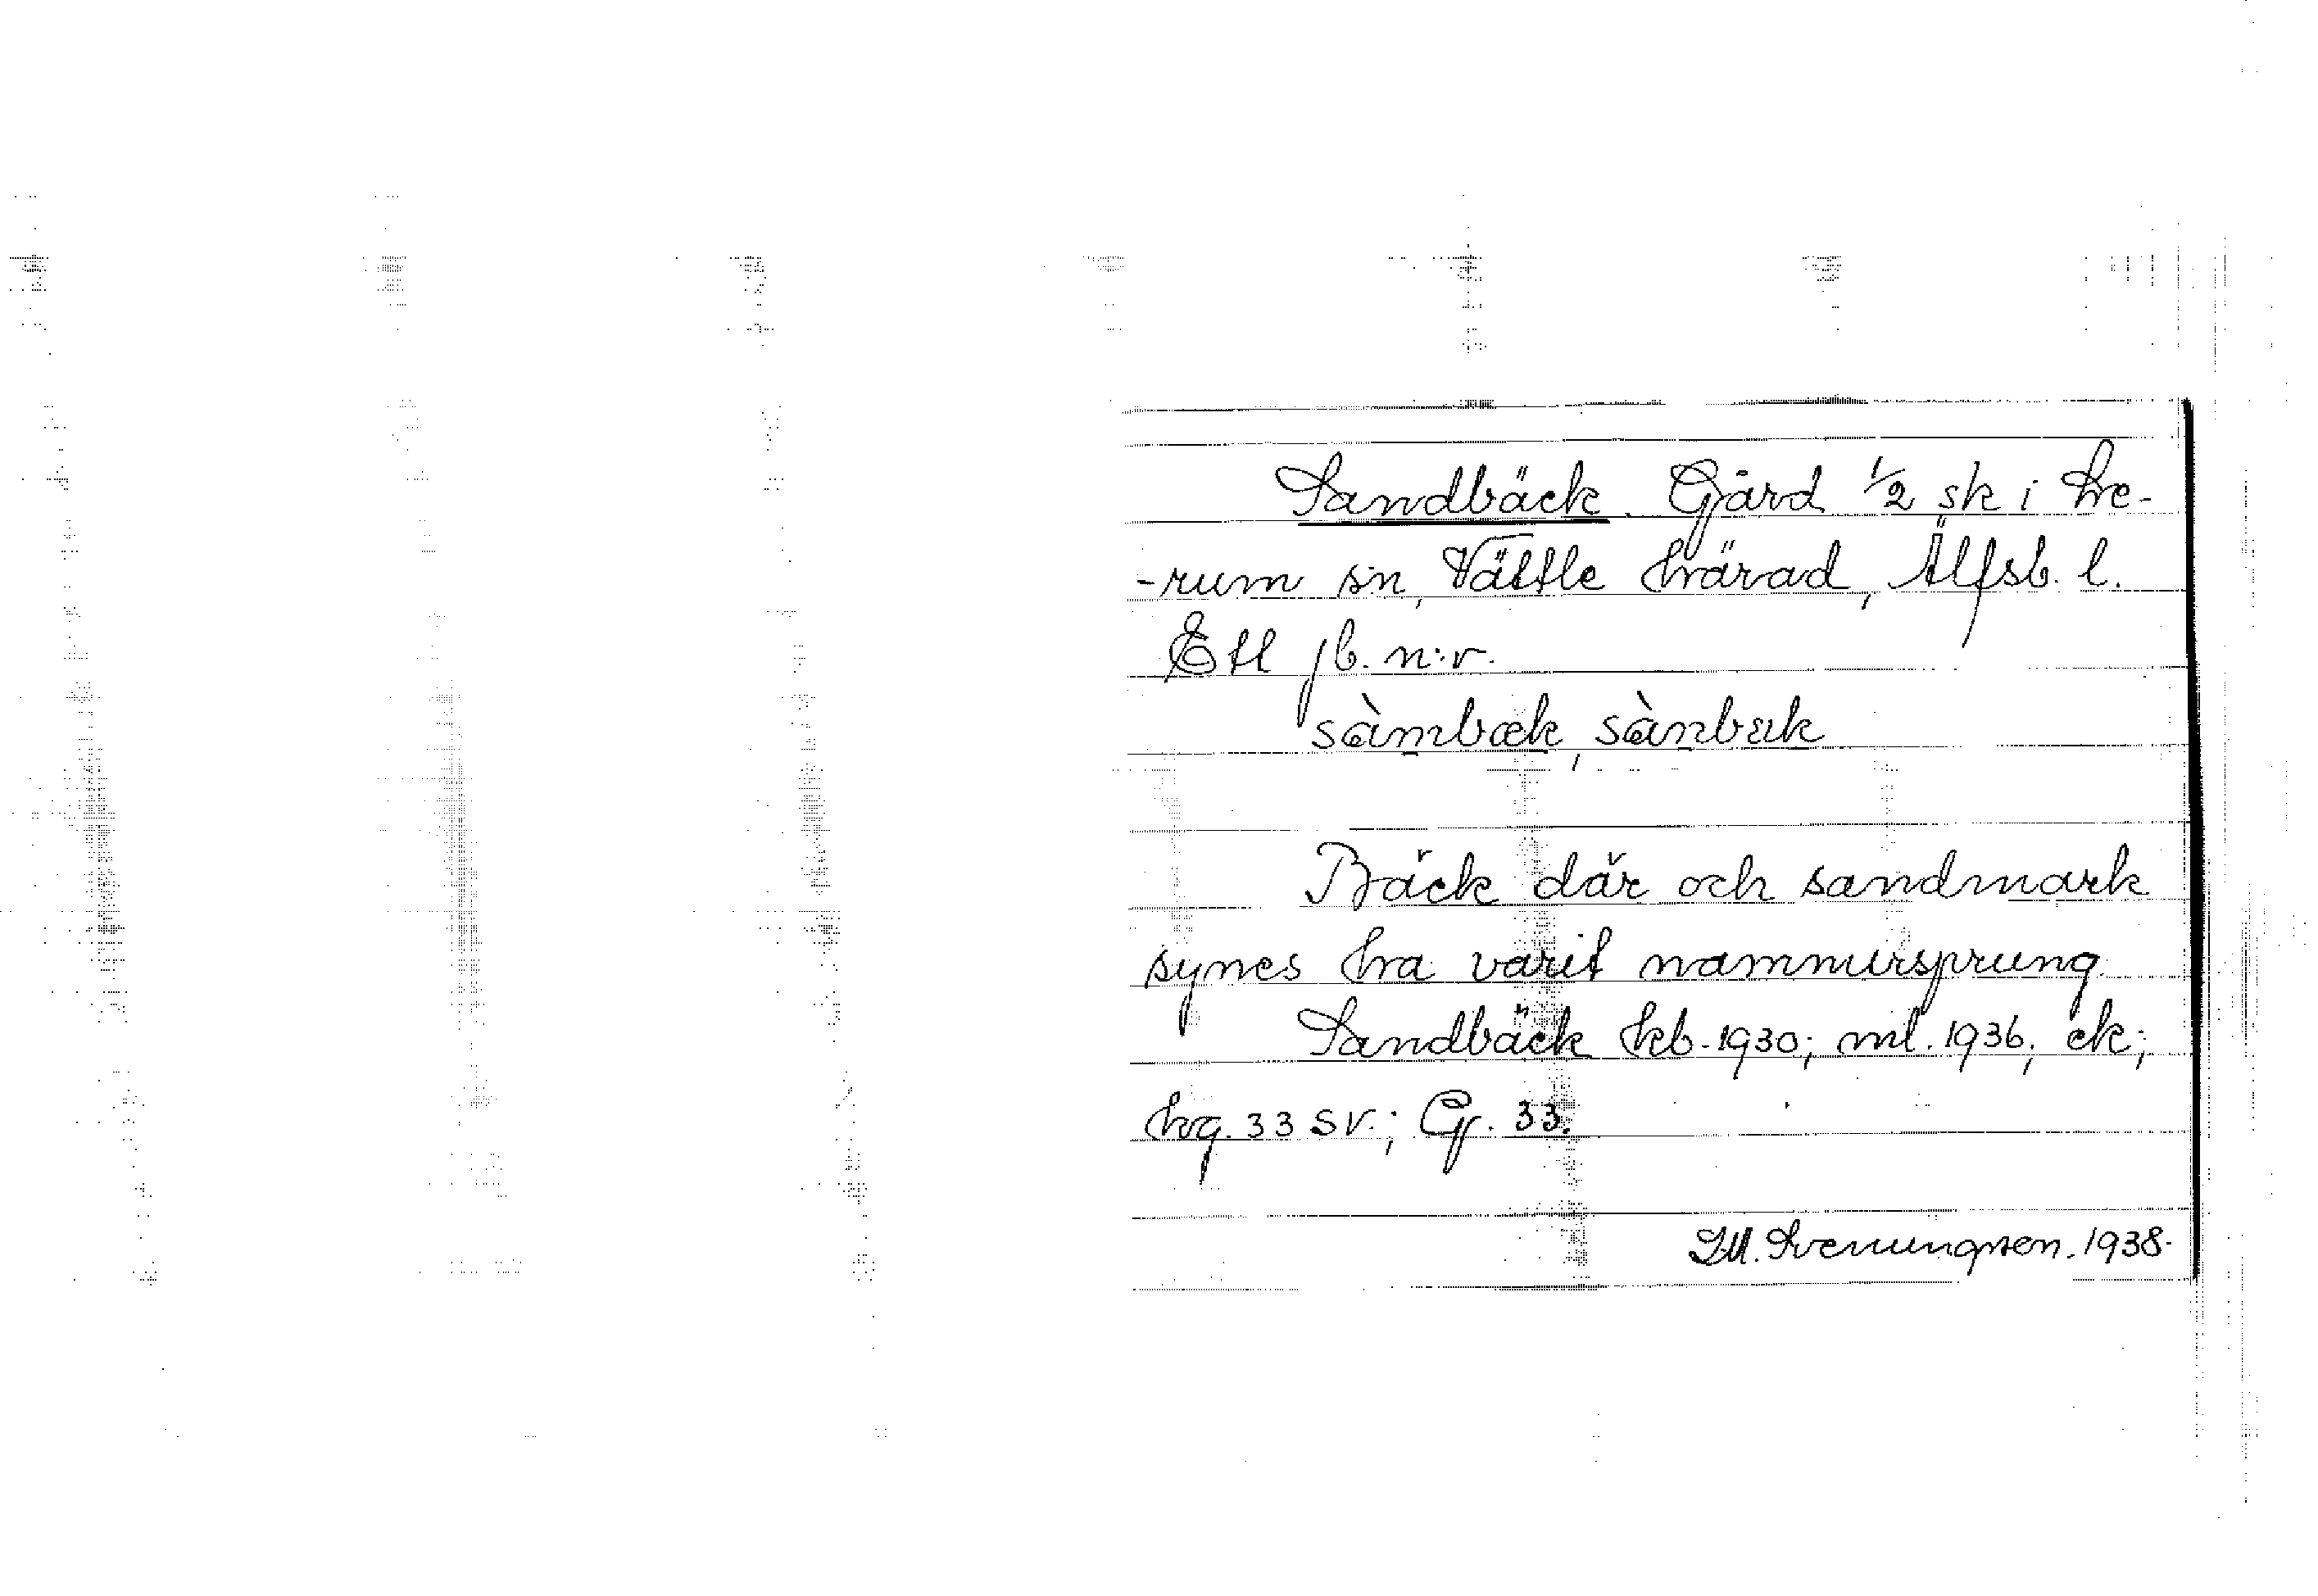 Sandbäck. Gård 1/2 sk i Le-
-rum sn, Vättle härad, Älfsb. l.
Ett jb. n:r.
sàmbæk, sànbæk
Bäck där och sandmark
synes ha varit namnursprung
Sandbäck kb. 1930; ml. 1936; ek;
hg. 33 sv.; Gf. 33.
Svenungsson. 1938.